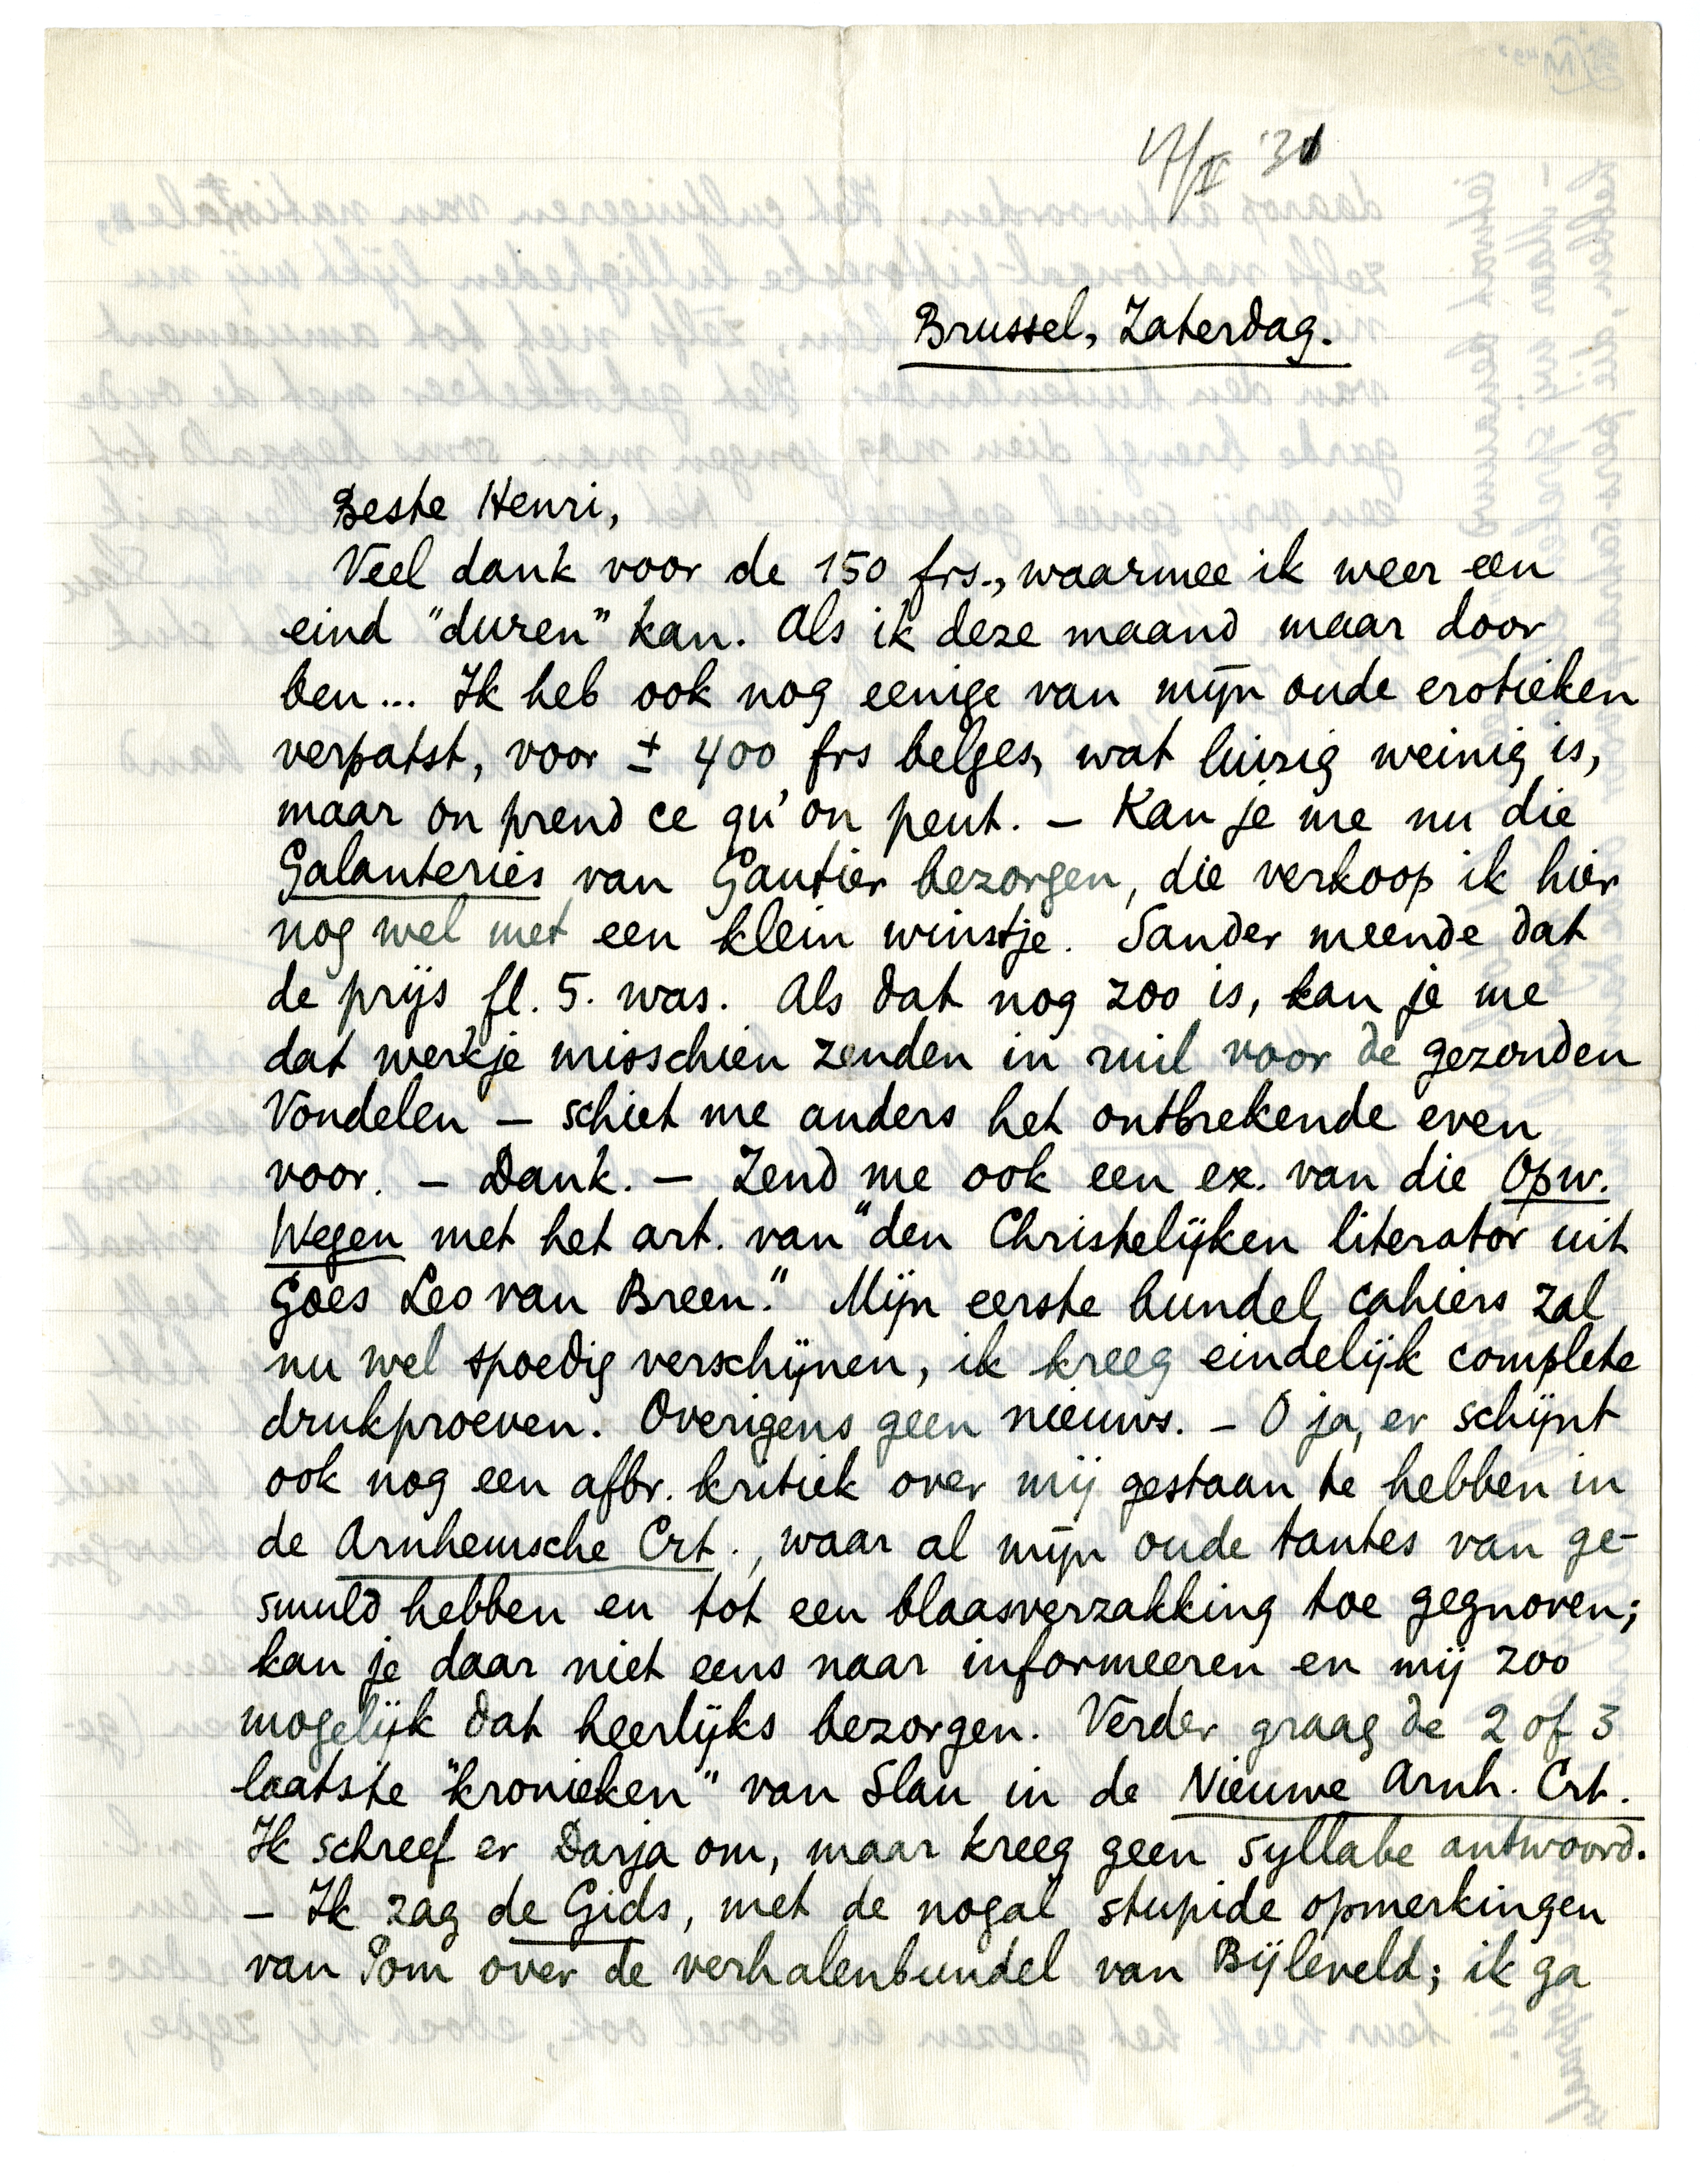 17/I '31
Brussel, Zaterdag.
Beste Henri,
Veel dank voor de 150 frs., waarmee ik weer een
eind "duren" kan. Als ik deze maand maar door
ben... Ik heb ook nog eenige van mijn oude erotieken
verpatst, voor ± 400 frs belges, wat luizig weinig is,
maar on prend ce qu'on peut. – Kan je me nu die
Galanteries van Gautier bezorgen, die verkoop ik hier
nog wel met een klein winstje. Sander meende dat
de prijs fl. 5. was. Als dat nog zoo is, kan je me
dat werkje misschien zenden in ruil voor de gezonden
Vondelen – schiet me anders het ontbrekende even
voor. – Dank. – Zend me ook een ex. van die Opw.
Wegen met het art. van "den Christelijken literator uit
Goes Leo van Breen." Mijn eerste bundel cahiers zal
nu wel spoedig verschijnen, ik kreeg eindelijk complete
drukproeven. Overigens geen nieuws. – O ja, er schijnt
ook nog een afbr. kritiek over mij gestaan te hebben in
de Arnhemsche Crt., waar al mijn oude tantes van ge-
smuld hebben en tot een blaasverzakking toe gegnoven;
kan je daar niet eens naar informeeren en mij zoo
mogelijk dat heerlijks bezorgen. Verder graag de 2 of 3
laatste "kronieken" van Slau in de Nieuwe Arnh. Crt.
Ik schreef er Darja om, maar kreeg geen syllabe antwoord.
– Ik zag de Gids, met de nogal stupide opmerkingen
van Pom over de verhalenbundel van Bijleveld; ik ga